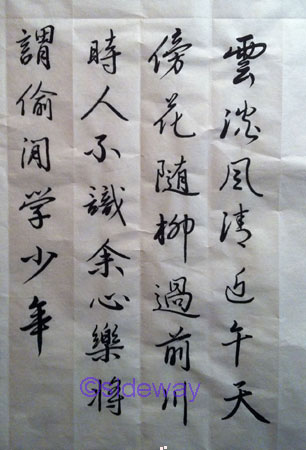 雲淡风清近午天
傍花随柳過前川
時人不識余心樂将
謂偷闲学少年
©sideway